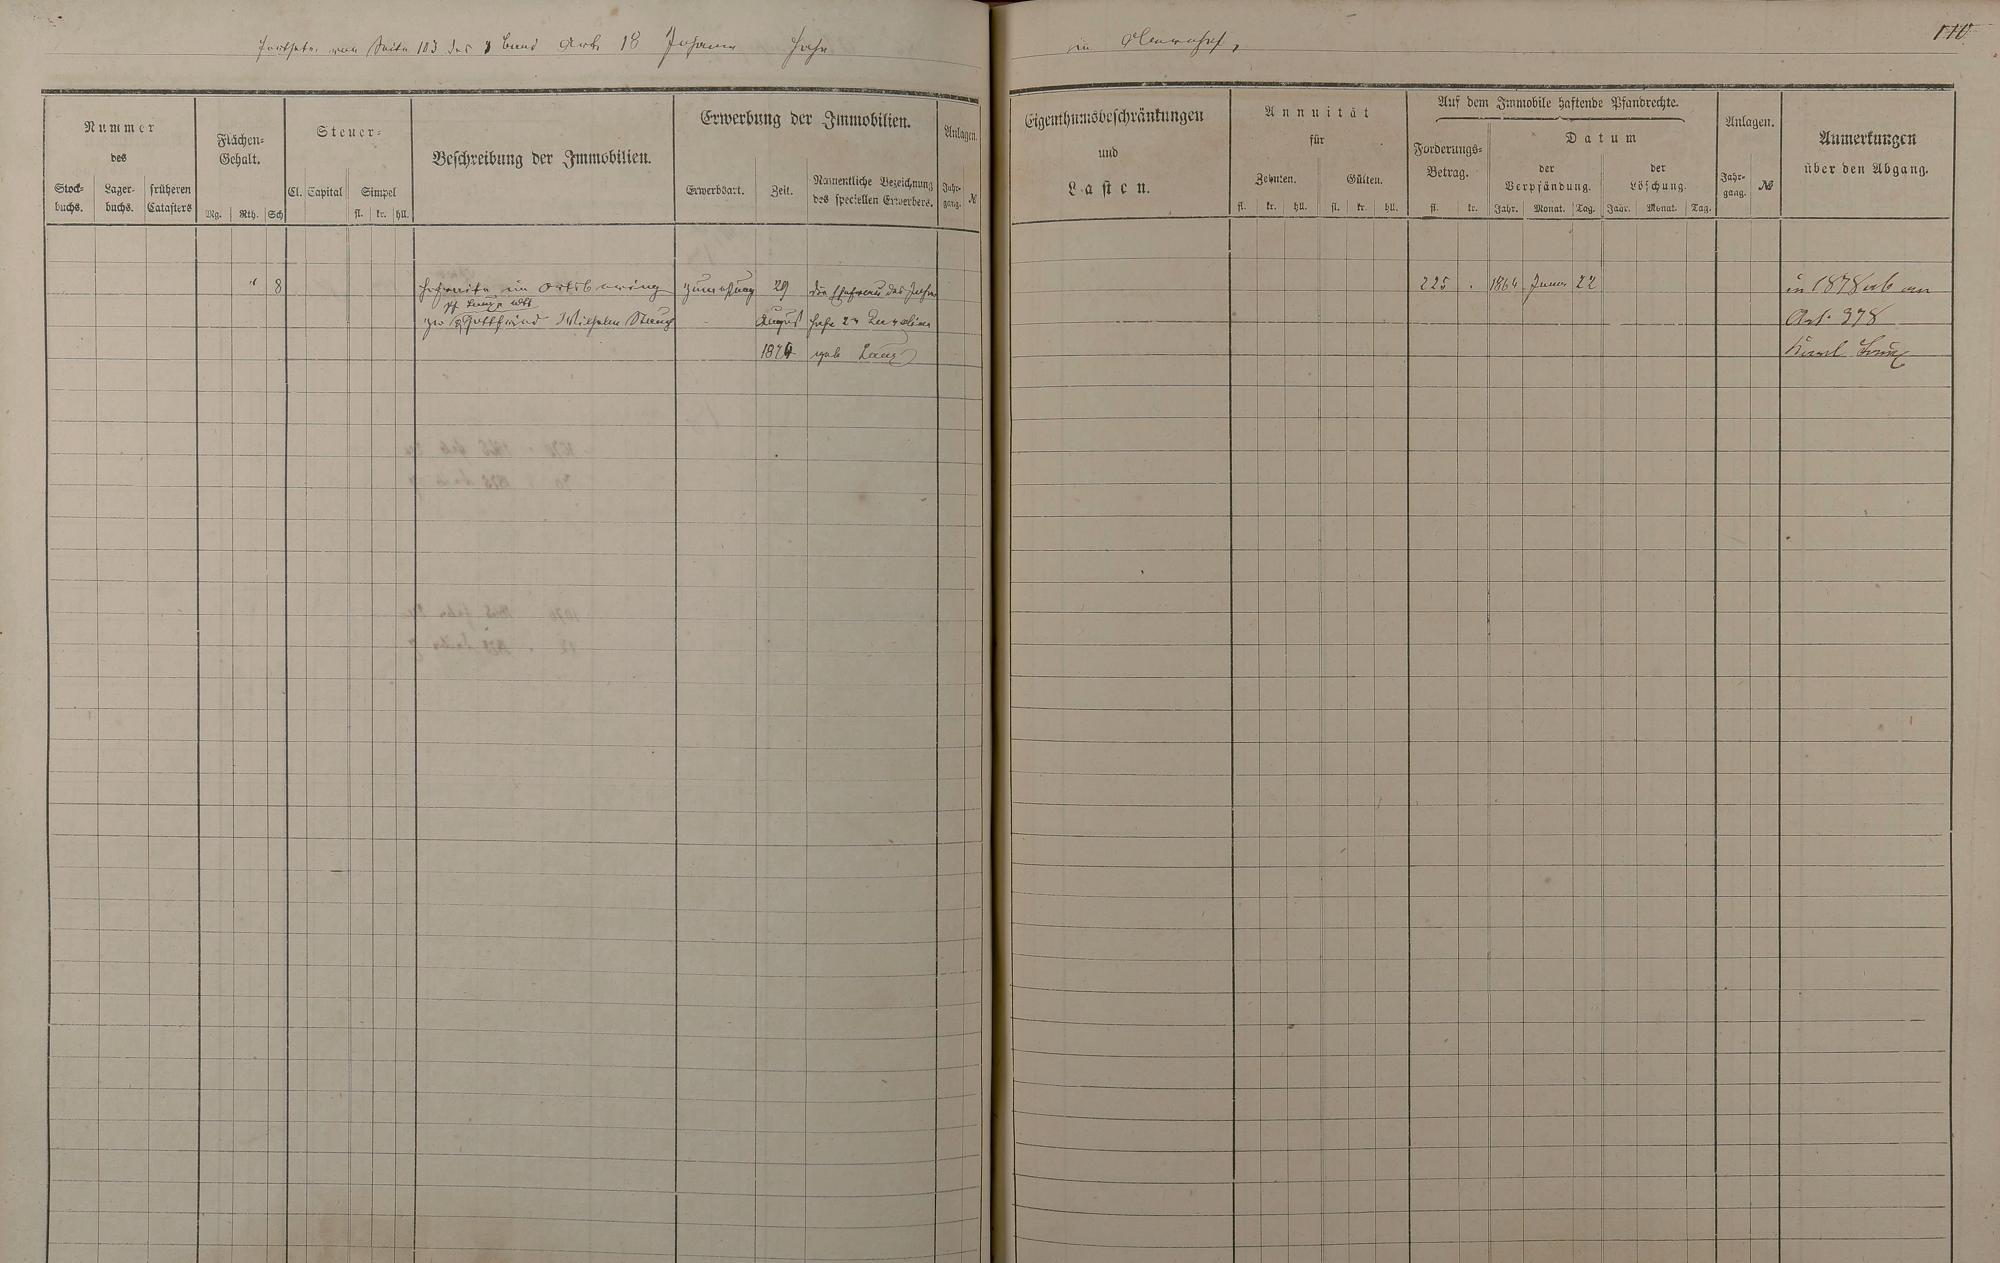 Fortsetz. von Seite 103 des 3 Band Art 18 Johann Hahn
in
110
Nummer
des
Stock-
buchs.
Lager-
buchs.
früheren
Catasters
Flächen-
Gehalt.
Mg. Rth. Sch
Steuer-
Cl. Capital
Simpel
fl. kr. hll.
Beschreibung der Immobilien.
Erwerbung der Immobilien.
Erwerbsart. Zeit.
Namentliche Bezeichnung
des speciellen Erwerbers.
Anlagen.
Jahr-
gang.
N
Eigenthumsbeschränkungen
und
Lasten.
Annuität
für
Zehnten. Gülten.
fl. kr. hll. fl. kr. hll.
Auf dem Immobile haftende Pfandrechte.
Forderungs-
Betrag.
fl. kr.
Datum
der
Verpfändung.
Jahr. Monat. Tag.
der
Löschung.
Jahr. Monat. Tag.
Anlagen.
Jahr-
gang.
№
Anmerkungen
über den Abgang.
" 8 Hofraite im Ortsbering 29 die Ehefrau des Johann
Gottfried Wilhelm August Hahn
1874 geb
225 . 1864 Januar 22
in 1878 ab an
Art. 378
Karl